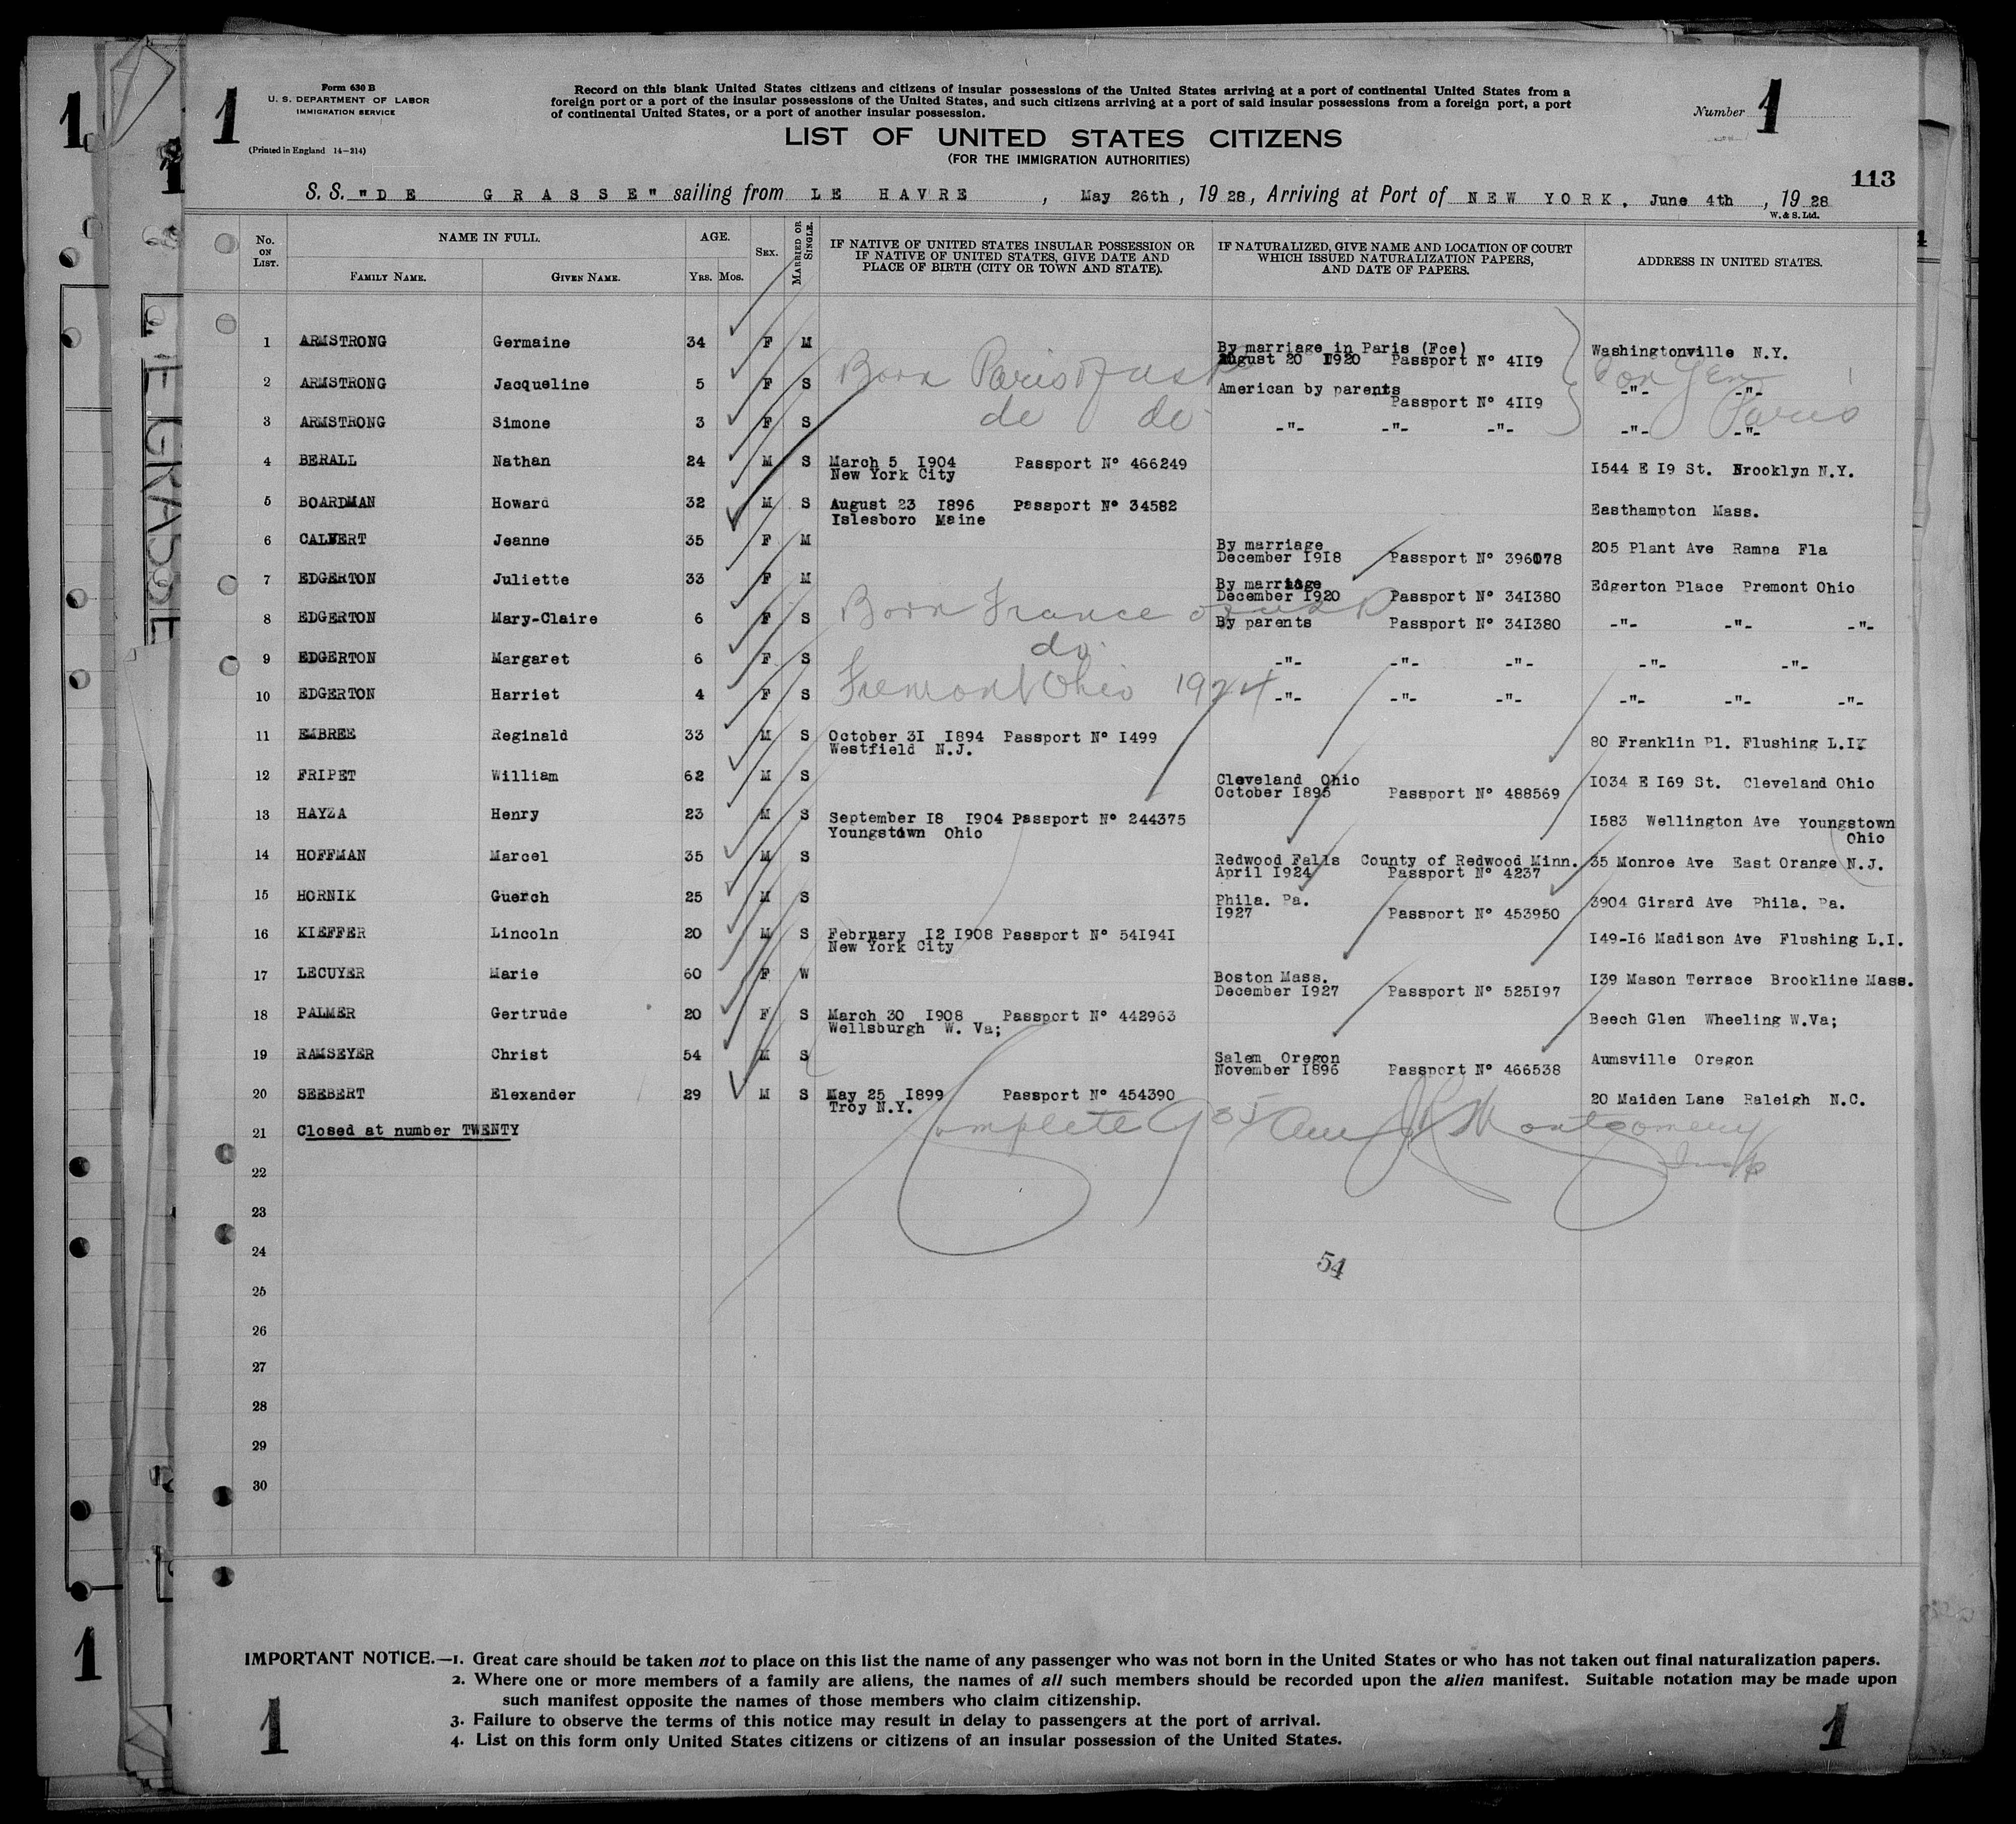 1
Form 630 B
U. S. DEPARTMENT OF LABOR
IMMIGRATION SERVICE
(Printed in England 14—214)
1
Record on this blank United States citizens and citizens of insular possessions of the United States arriving at a port of continental United States from a
foreign port or a port of the insular possessions of the United States, and such citizens arriving at a port of said insular possessions from a foreign port, a port
of continental United States, or a port of another insular possession.
LIST OF UNITED STATES CITIZENS
(FOR THE IMMIGRATION AUTHORITIES)
Number 1
113
S. S. "DE GRASSE" sailing from LE HAVRE, May 26th, 1928, Arriving at Port of NEW YORK. June 4th, 1928
W. & S. Ltd.
No. ON LIST. NAME IN FULL. AGE. SEX. MARRIED OR SINGLE. IF NATIVE OF UNITED STATES INSULAR POSSESSION OR IF NATIVE OF UNITED STATES, GIVE DATE AND PLACE OF BIRTH (CITY OR TOWN AND STATE). IF NATURALIZED, GIVE NAME AND LOCATION OF COURT WHICH ISSUED NATURALIZATION PAPERS, AND DATE OF PAPERS. ADDRESS IN UNITED STATES.
FAMILY NAME. GIVEN NAME. YRS. MOS.
1 ARMSTRONG Germaine 34 F M By marriage in Paris (Fce) Washingtonville N.Y.
August 20 1920 Passport N° 4II9
2 ARMSTRONG Jacqueline 5 F S Born Paris American by parents -"- -"-
Passport N° 4II9
3 ARMSTRONG Simone 3 F S do do -"- -"- -"- -"- -"-
Con Gen Paris
4 BERALL Nathan 24 M S March 5 I904 Passport N° 466249 I544 E I9 St. Brooklyn N.Y.
New York City
5 BOARDMAN Howard 32 M S August 23 I896 Passport N° 34582 Easthampton Mass.
Islesboro Maine
6 CALVERT Jeanne 35 F M By marriage 205 Plant Ave Rampa Fla
December I9I8 Passport N° 396078
7 EDGERTON Juliette 33 F M By marriage Edgerton Place Premont Ohio
December I920 Passport N° 34I380
8 EDGERTON Mary-Claire 6 F S Born France By parents Passport N° 34I380 -"- -"- -"-
9 EDGERTON Margaret 6 F S do. -"- -"- -"- -"- -"-
10 EDGERTON Harriet 4 F S Fremont Ohio 1924 -"- -"- -"- -"- -"- -"-
11 EMBREE Reginald 33 M S October 3I I894 Passport N° I499 80 Franklin Pl. Flushing L.I
Westfield N.J.
12 FRIPET William 62 M S Cleveland Ohio I034 E I69 St. Cleveland Ohio
October I895 Passport N° 488569
13 HAYZA Henry 23 M S September I8 I904 Passport N° 244375 I583 Wellington Ave Youngstown
Youngstown Ohio Ohio
14 HOFFMAN Marcel 35 M S Redwood Falls County of Redwood Minn. 35 Monroe Ave East Orange N.J.
April I924 Passport N° 4237
15 HORNIK Guerch 25 M S Phila. Pa. 3904 Girard Ave Phila. Pa.
I927 Passport N° 453950
16 KIEFFER Lincoln 20 M S February I2 I908 Passport N° 54I94I I49-I6 Madison Ave Flushing L.I.
New York City
17 LECUYER Marie 60 F W Boston Mass. I39 Mason Terrace Brookline Mass.
December I927 Passport N° 525I97
18 PALMER Gertrude 20 F S March 30 I908 Passport N° 442963 Beech Glen Wheeling W.Va;
Wellsburgh W. Va;
19 RAMSEYER Christ 54 M S Salem Oregon Aumsville Oregon
November I896 Passport N° 466538
20 SEEBERT Elexander 29 M S May 25 I899 Passport N° 454390 20 Maiden Lane Raleigh N.C.
Troy N.Y.
21 Closed at number TWENTY
Complete 935 am J R Montgomery
Insp
22
23
24
54
25
26
27
28
29
30
IMPORTANT NOTICE.—1. Great care should be taken not to place on this list the name of any passenger who was not born in the United States or who has not taken out final naturalization papers.
2. Where one or more members of a family are aliens, the names of all such members should be recorded upon the alien manifest. Suitable notation may be made upon
such manifest opposite the names of those members who claim citizenship.
3. Failure to observe the terms of this notice may result in delay to passengers at the port of arrival.
4. List on this form only United States citizens or citizens of an insular possession of the United States.
1
1
1